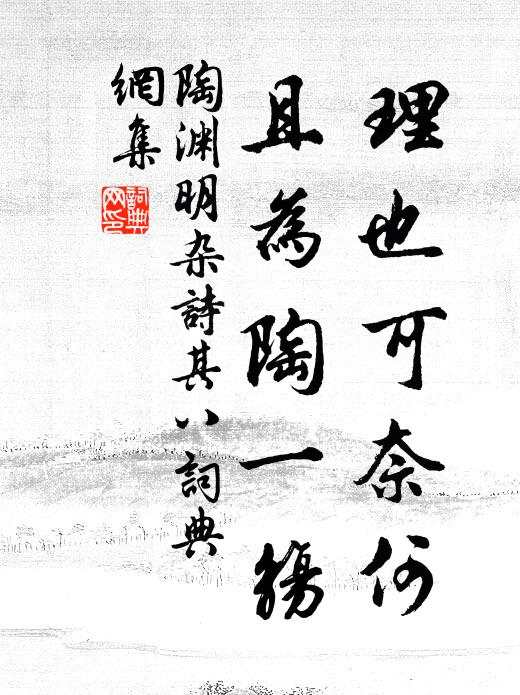 理也可奈何
且為陶一觴
陶渊明杂詩其八詞典
網集
詞典
网印